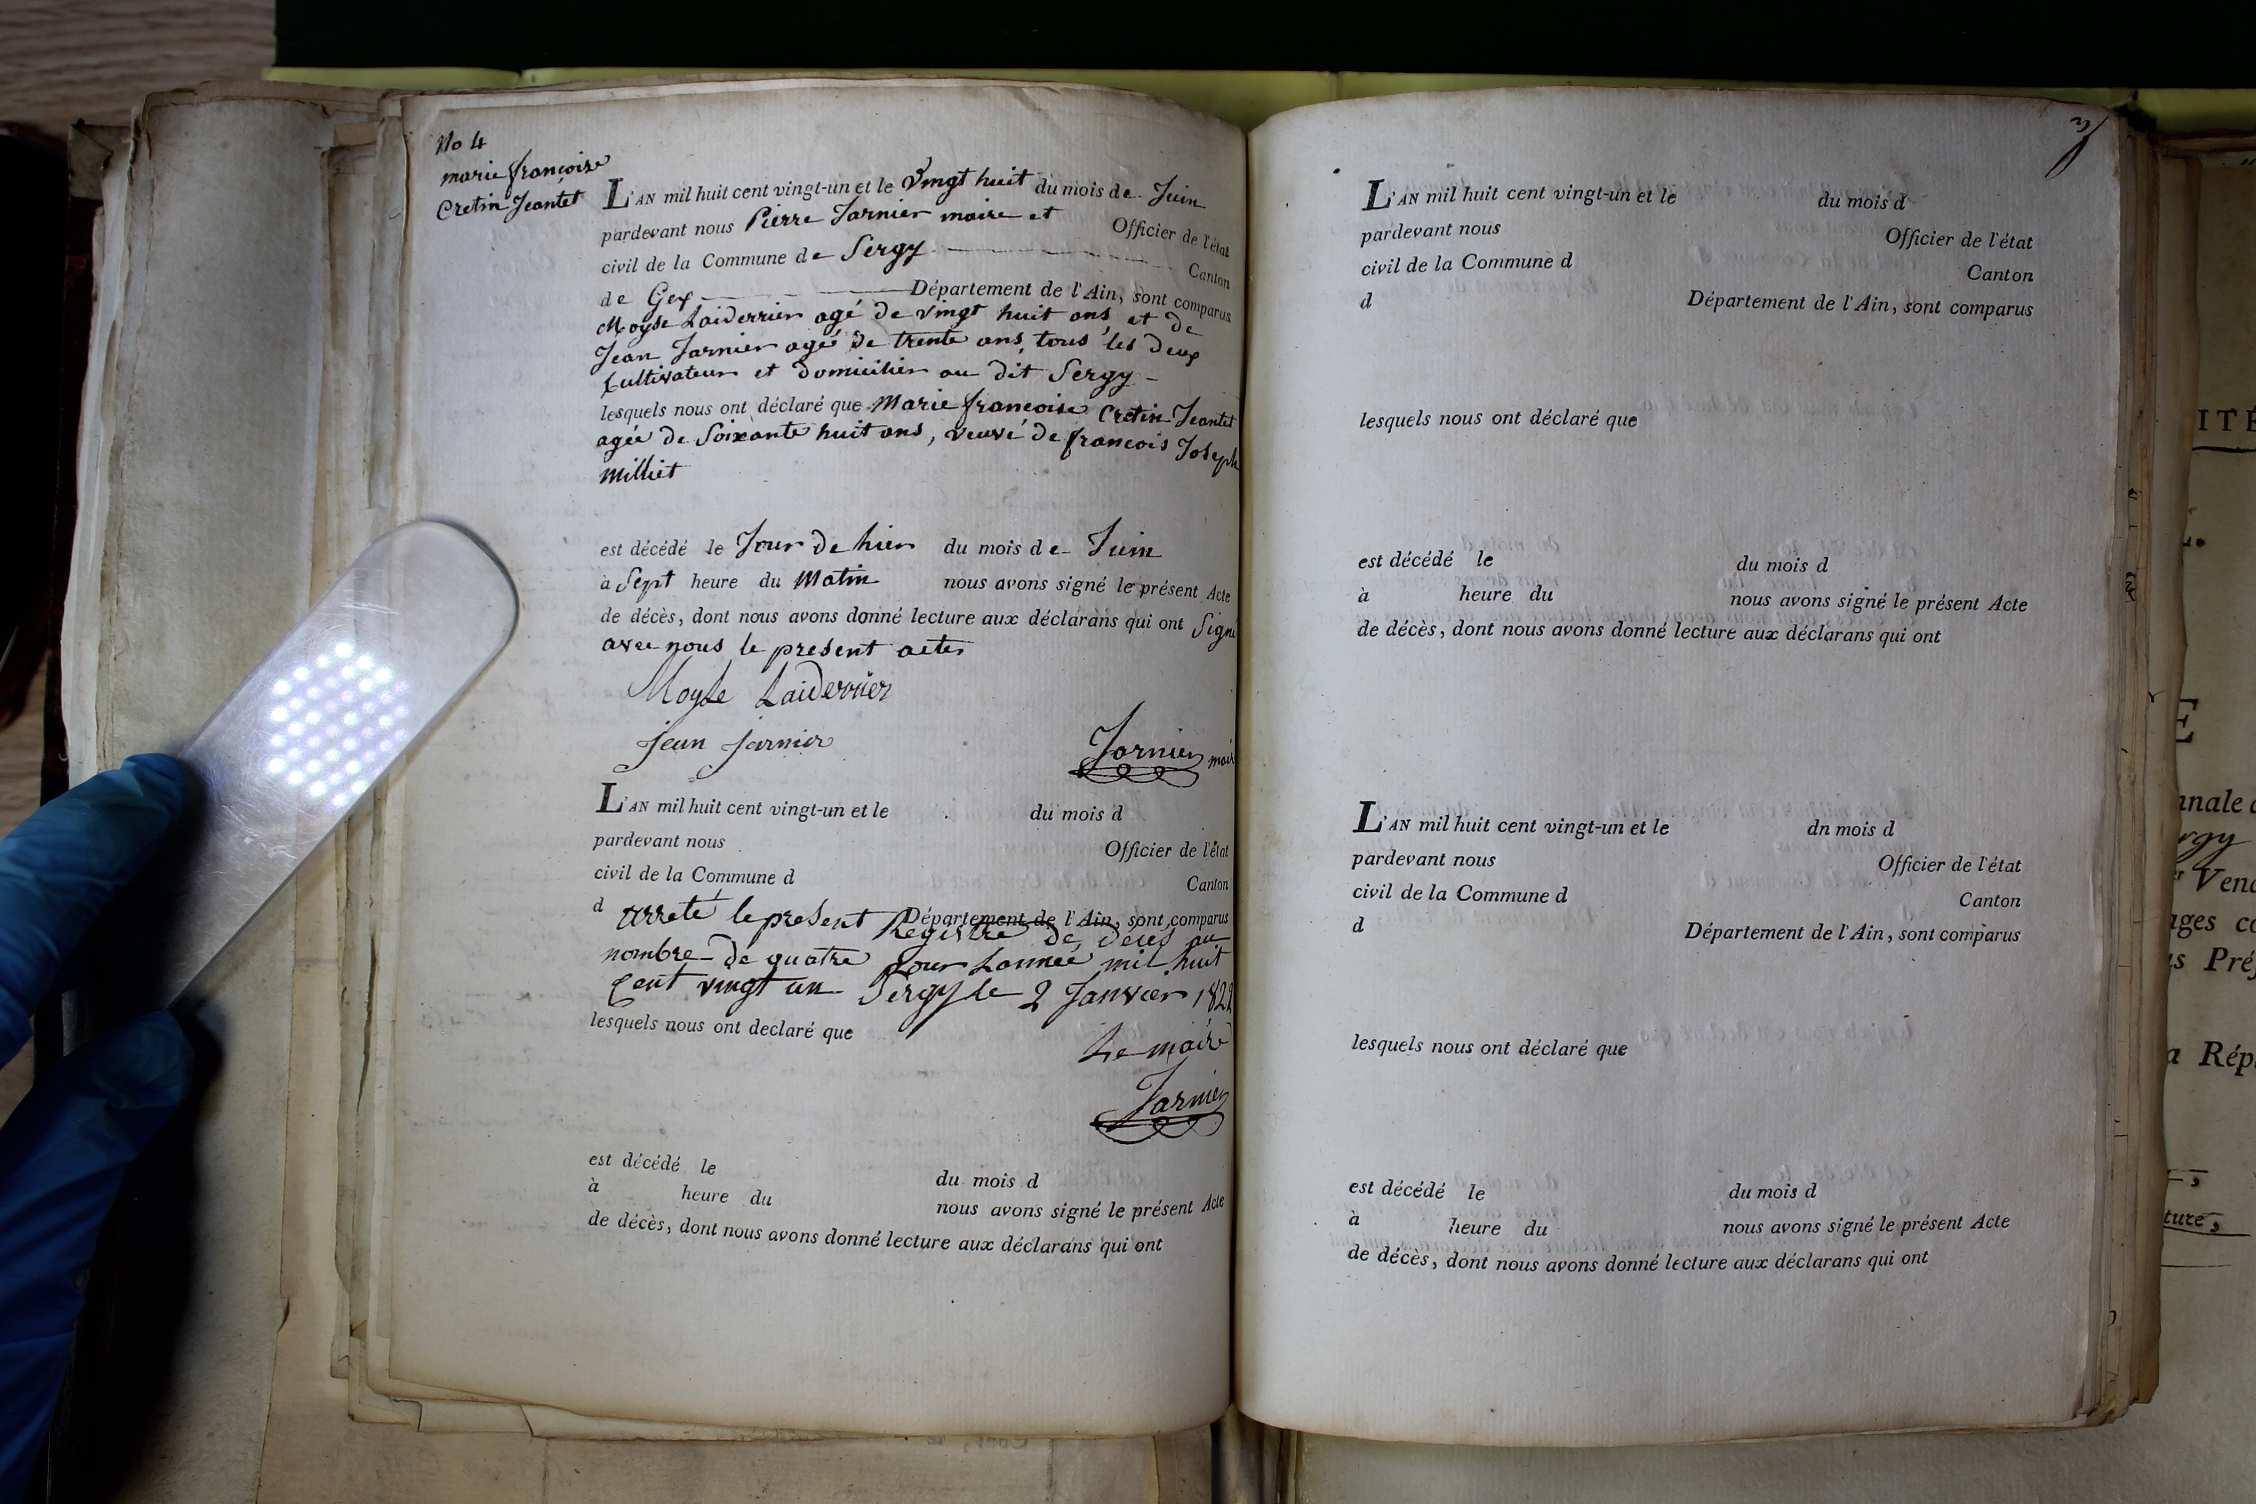 No 4
marie françoise
Cretin Jeantet
L'AN mil huit cent vingt-un et le vingt huit du mois de Juin
pardevant nous Pierre Jarnier maire et Officier de l'état
civil de la Commune de Sergy Canton
de Gex Département de l'Ain, sont comparus
Moyse Laiderrier agé de vingt huit ans et de
Jean Jarnier agé de trente ans, tous les deux
Cultivateur et domicilier au dit Sergy
lesquels nous ont déclaré que Marie françoise Cretin Jeantet
agée de Soixante huit ans, veuve de françois Joseph
Milliet
est décédé le Jour de hier du mois de Juin
à Sept heure du Matin nous avons signé le présent Acte
de décès, dont nous avons donné lecture aux déclarans qui ont Signé
avec nous le present acte
Moyse Laiderrier
Jean Jarnier
Jarnier maire
L'AN mil huit cent vingt-un et le du mois d
pardevant nous Officier de l'état
civil de la Commune d Canton
d Département de l'Ain, sont comparus
arreté le present Registre de déces au
nombre de quatre pour Lannée mil huit
Cent vingt un Sergy le 2 Janvier 1822
lesquels nous ont declaré que
Le maire
Jarnier
est décédé le du mois d
à heure du nous avons signé le présent Acte
de décès, dont nous avons donné lecture aux déclarans qui ont
3
L'AN mil huit cent vingt-un et le du mois d
pardevant nous Officier de l'état
civil de la Commune d Canton
d Département de l'Ain, sont comparus
lesquels nous ont déclaré que
est décédé le du mois d
à heure du nous avons signé le présent Acte
de décès, dont nous avons donné lecture aux déclarans qui ont
L'AN mil huit cent vingt-un et le dn mois d
pardevant nous Officier de l'état
civil de la Commune d Canton
d Département de l'Ain, sont comparus
lesquels nous ont déclaré que
est décédé le du mois d
à heure du nous avons signé le présent Acte
de décès, dont nous avons donné lecture aux déclarans qui ont
ITÉ
E
nnale
rgy
Vend
ages co
s Préf
a Rép
ture,